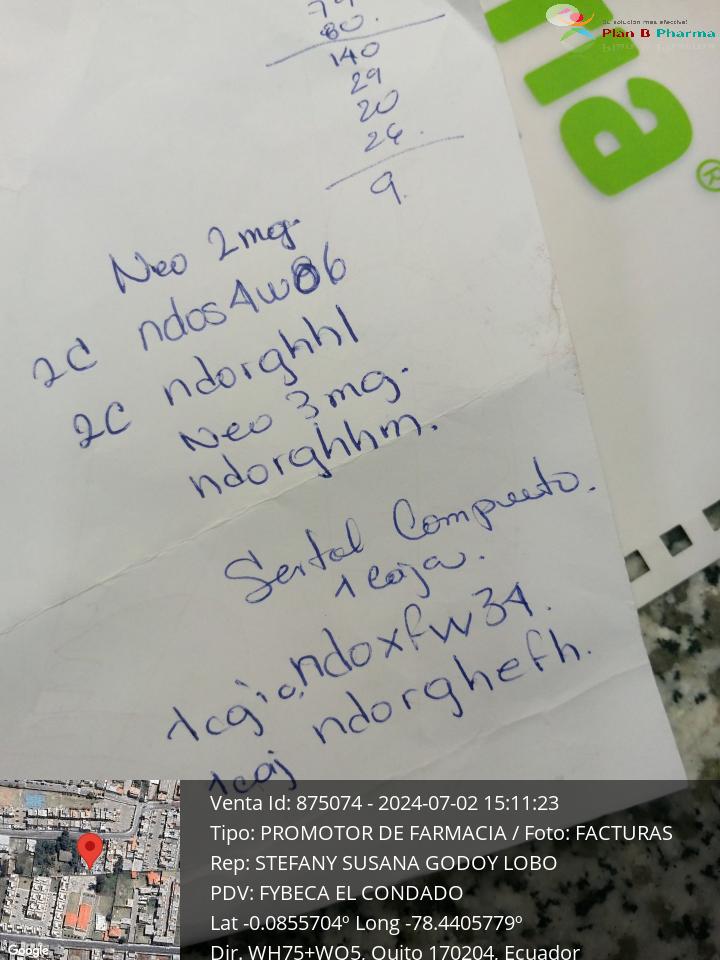 Su solución más efectiva!
Plan B Pharma
na
®
80.
140
29
20
26.
9.
Neo 2mg.
2C ndos4w86
2C ndorghhl
Neo 3mg.
ndorghhm.
Sertal Compuesto.
1 caja.
ndoxfw34.
ndorghefh.
1 caj
Venta Id: 875074 - 2024-07-02 15:11:23
Tipo: PROMOTOR DE FARMACIA / Foto: FACTURAS
Rep: STEFANY SUSANA GODOY LOBO
PDV: FYBECA EL CONDADO
Lat -0.0855704º Long -78.4405779º
Dir. WH75+WQ5, Quito 170204, Ecuador
Google